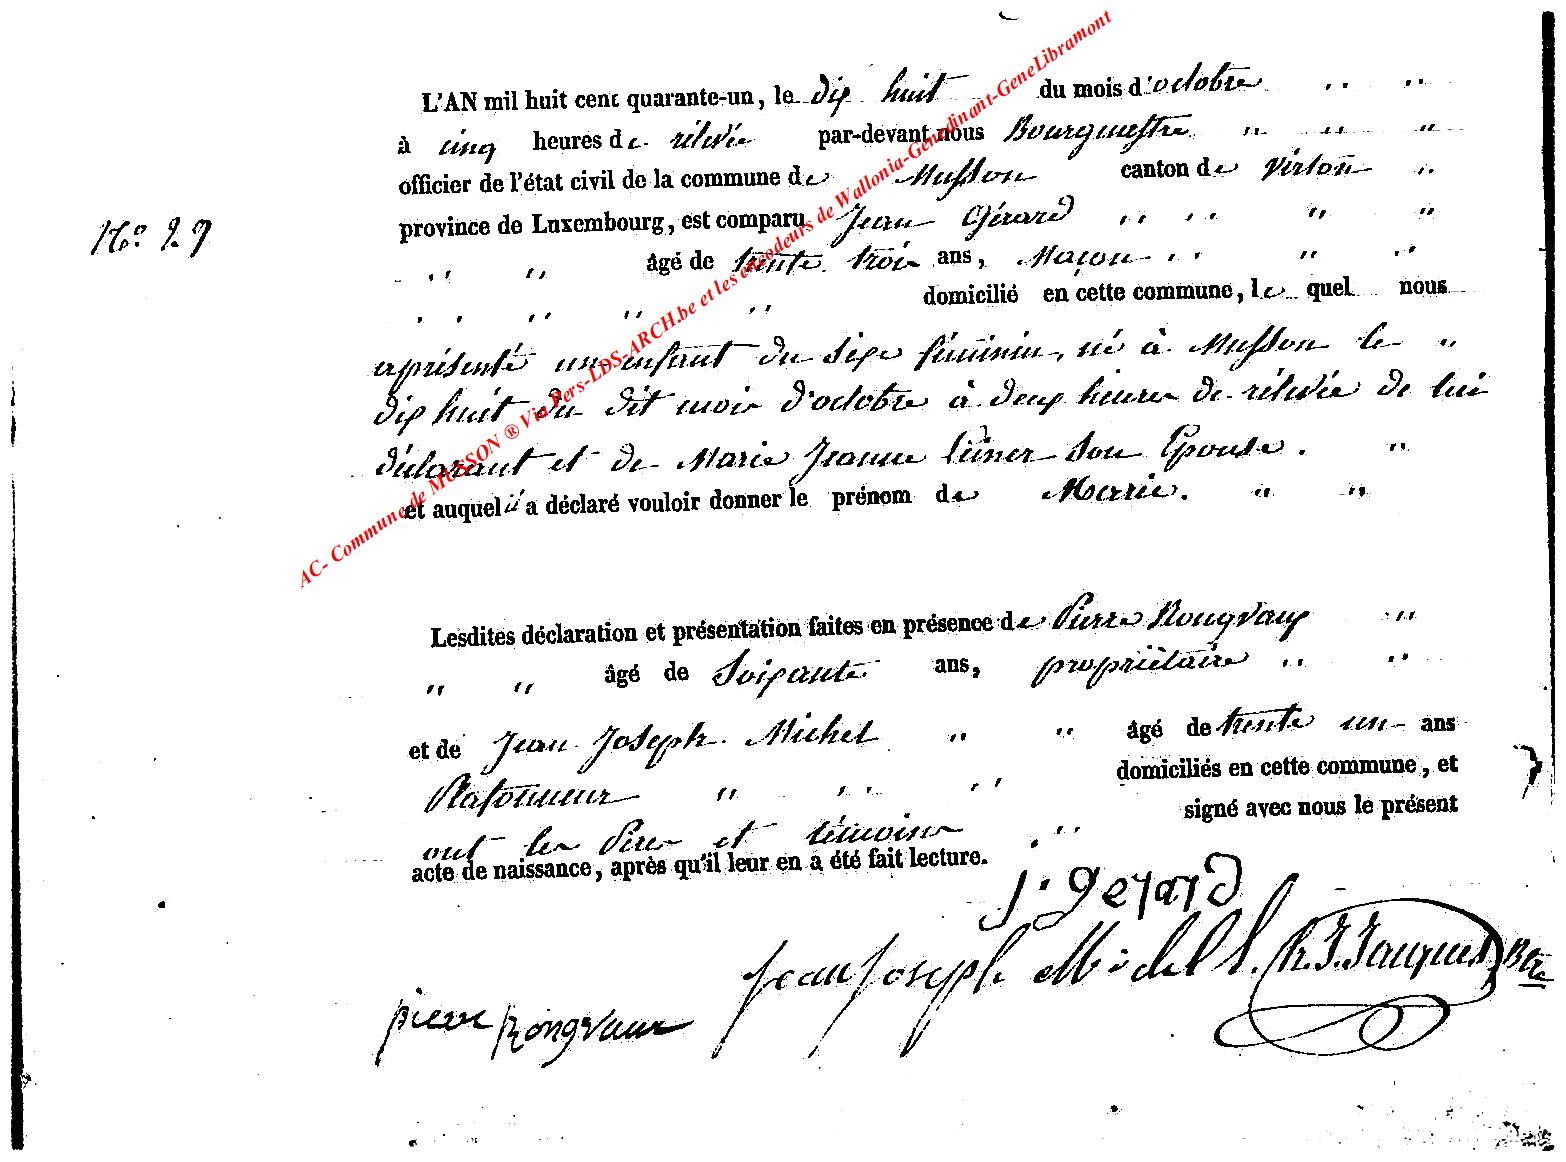 L'AN mil huit cent quarante-un, le dix huit du mois d'octobre " "
à cinq heures de rélevée par-devant nous Bourgmestre " " "
officier de l'état civil de la commune de Musson canton de Virton "
N.° 29
province de Luxembourg, est comparu Jean Gérard " " " "
" " âgé de trente trois ans, Maçon " " "
" " " " " domicilié en cette commune, le quel nous
a présenté un enfant du sexe féminin, né à Musson le "
dix huit du dit mois d'octobre à deux heures de rélevée de lui
déclarant et de Marie Jeanne son Epouse. "
et auquel il a déclaré vouloir donner le prénom de Marie. " "
Lesdites déclaration et présentation faites en présence de Pierre Rongvaux "
" " âgé de Soixante ans, propriètaire " "
et de Jean Joseph Michel " " âgé de trente un ans
Plafonneur " " " domiciliés en cette commune, et
ont les Père et témoins " signé avec nous le présent
acte de naissance, après qu'il leur en a été fait lecture.
j. gerard
Jean Joseph Michel J. Jacques Btre
pierre Rongvaux
AC- Commune de MUSSON ® Via Pers-LDS-ARCH.be et les encodeurs de Wallonia-Genedinant-GeneLibramont